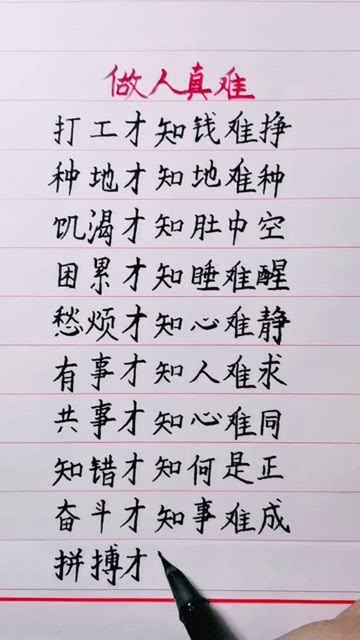 做人真难
打工才知钱难挣
种地才知地难种
饥渴才知肚中空
困累才知睡难醒
愁烦才知心难静
有事才知人难求
共事才知心难同
知错才知何是正
奋斗才知事难成
拼搏才